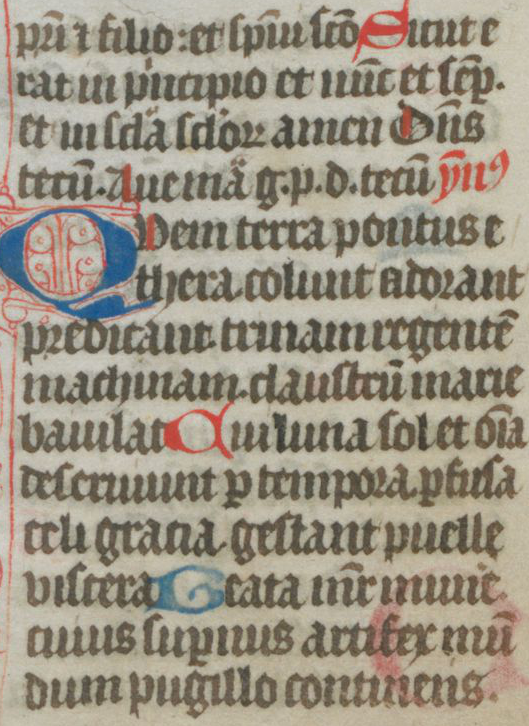 pr̄i ⁊ filio : et sp̄iui sc̄o Sicut e
rat in pⁱncipio et nūc et sēp.
et in scl̄a sclōꝝ amen Dn̄s
tecū. Aue mā g. p. d. tecū ẏnꝰ
Quem terra pontus e
thera colunt adorant
predicant. trinam regentē
machinam. claustrū marie
baiulat Cui luna sol et oīa
deseruiunt ꝑ tempora. ꝑfusa
celi gracia. gestant puelle
viscera Beata mr̄ mune
cuius supnus artifex mū
dum pugillo continens.